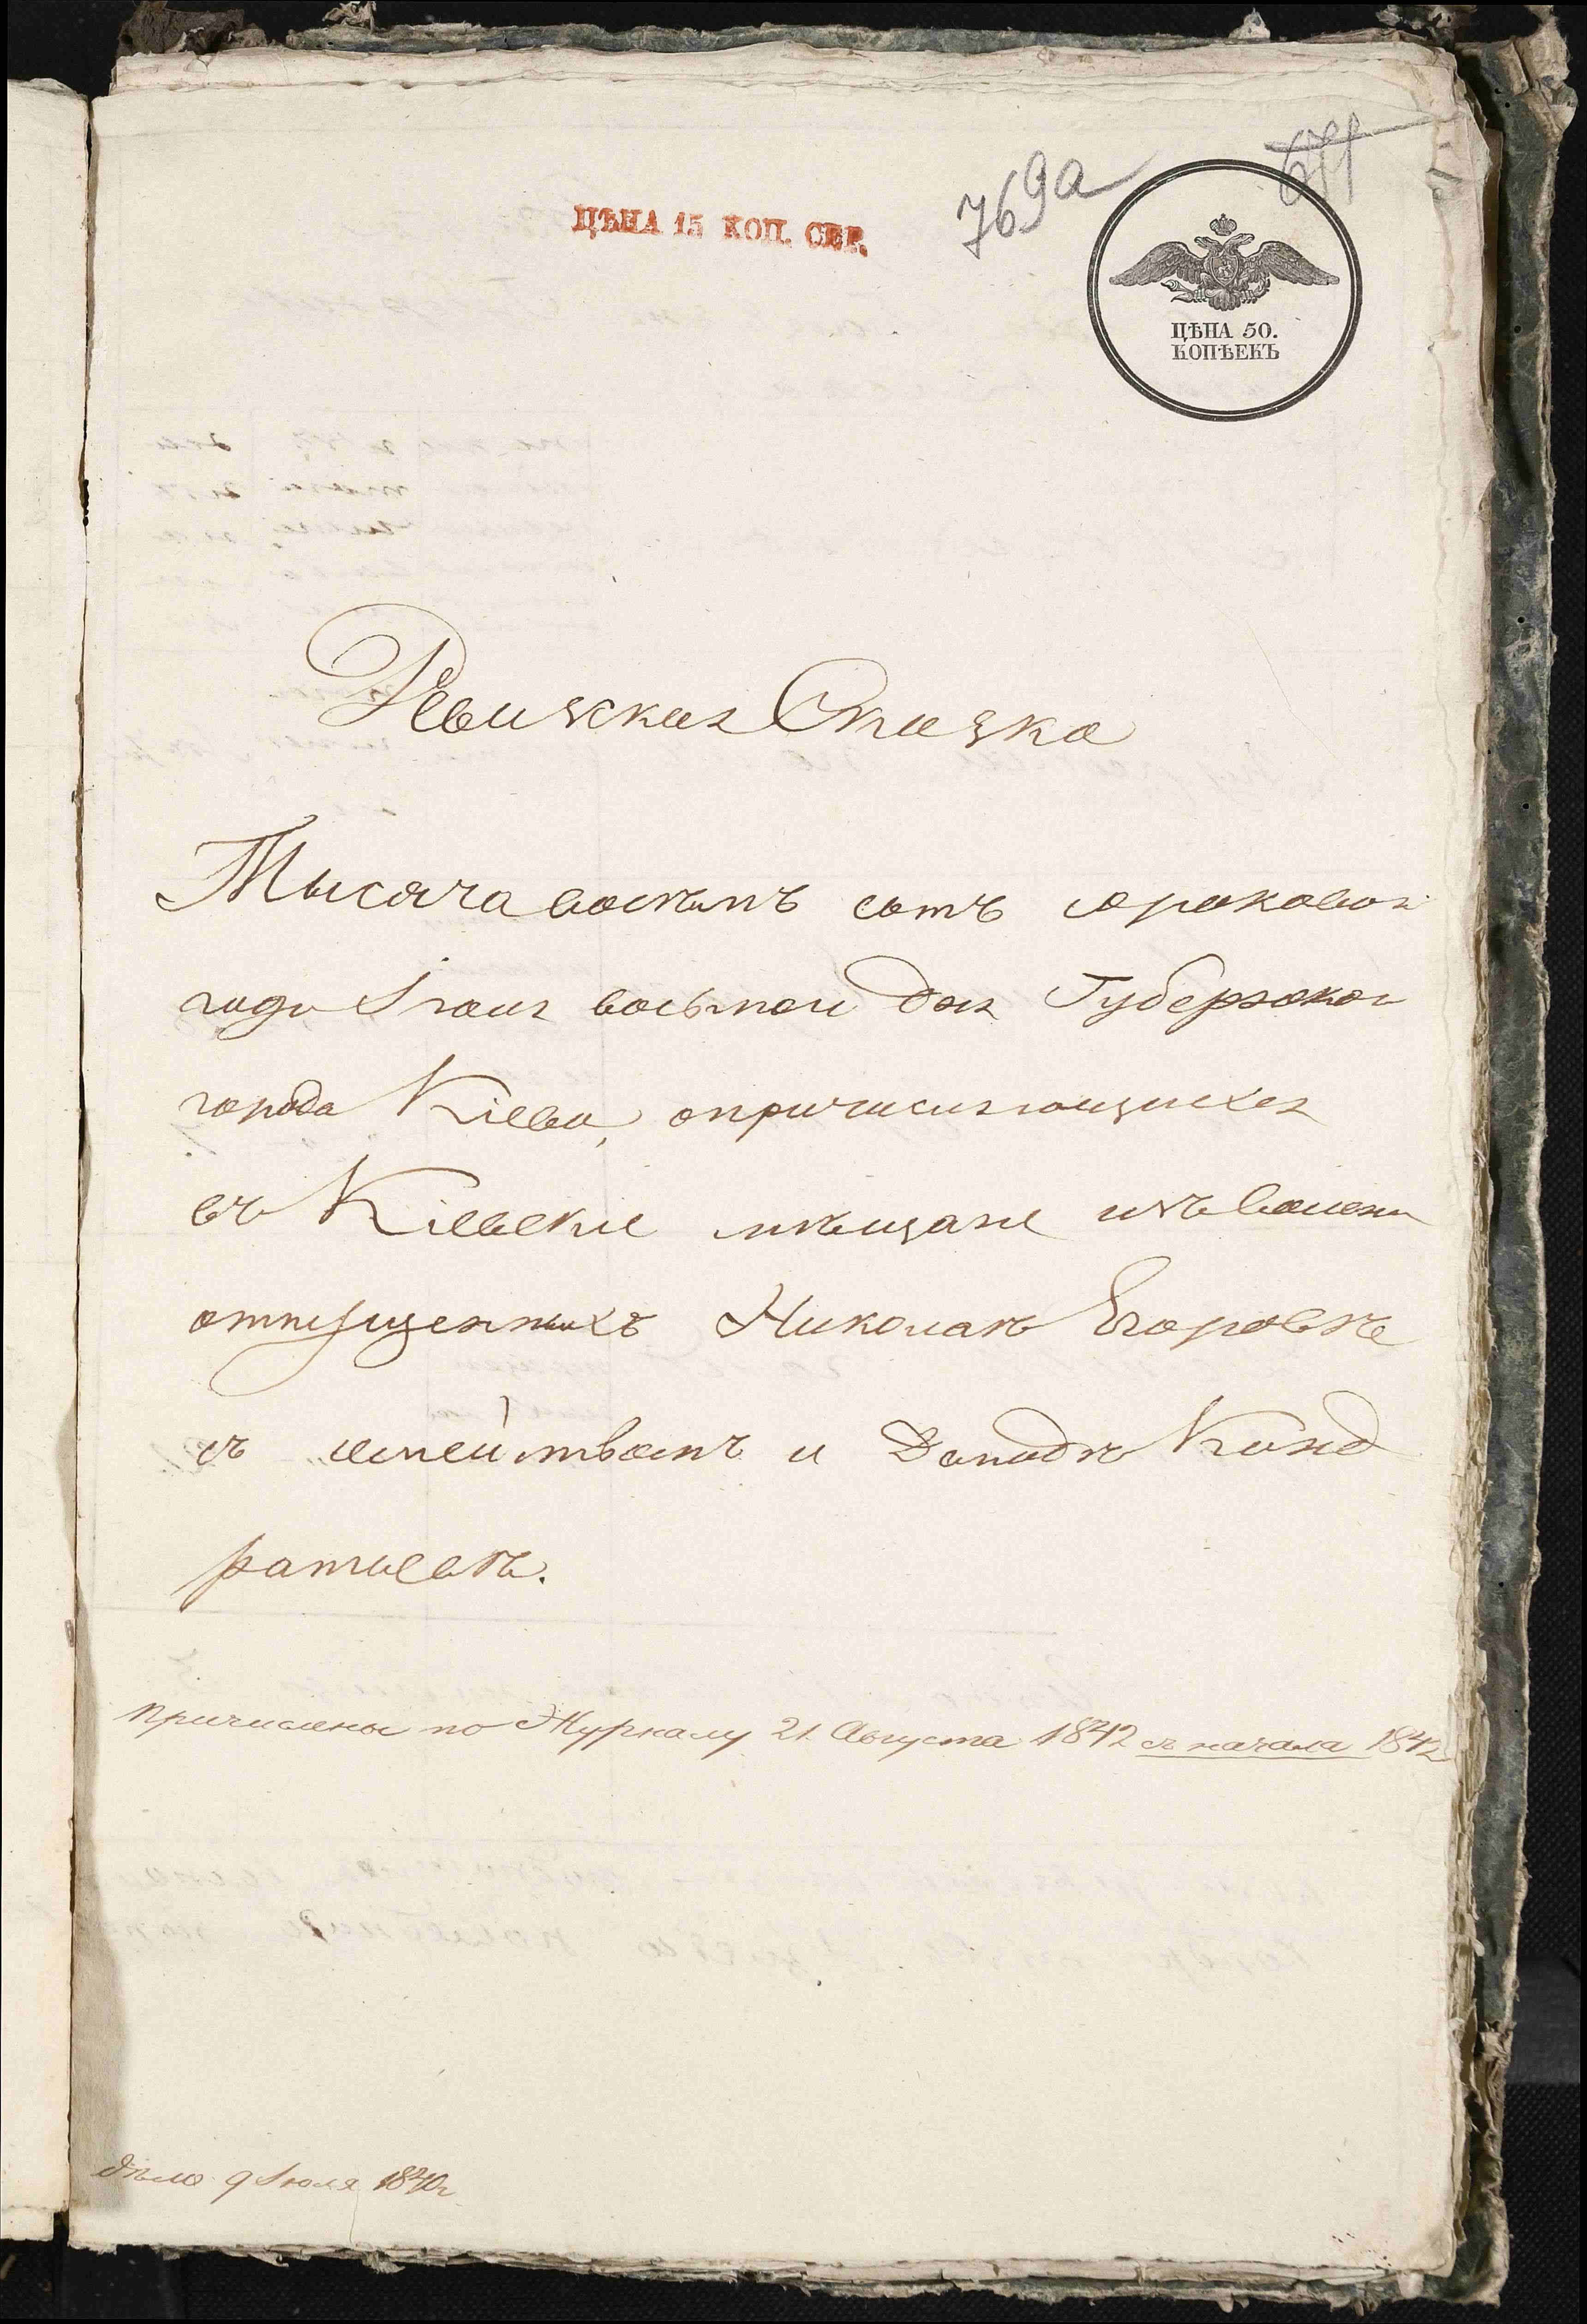 769а
671
ЦѢНА 15 КОП. СЕР.
ЦѢНА 50.
КОПѢЕКЪ
Ревизская Сказка
Тысяча восемъ сотъ сороковаго
года Iюля восьмой дня Губернского
города Кіева, опричисляющихся
въ Кіевскіе мѣщане изъ вольно
отпущенныхъ Николаѣ Егоровѣ
съ семействомъ и Демидѣ Конд
ратьевѣ.
Причислены по Журналу 21 Августа 1842 съ начала 1842
дѣло 9 Iюля 1840г